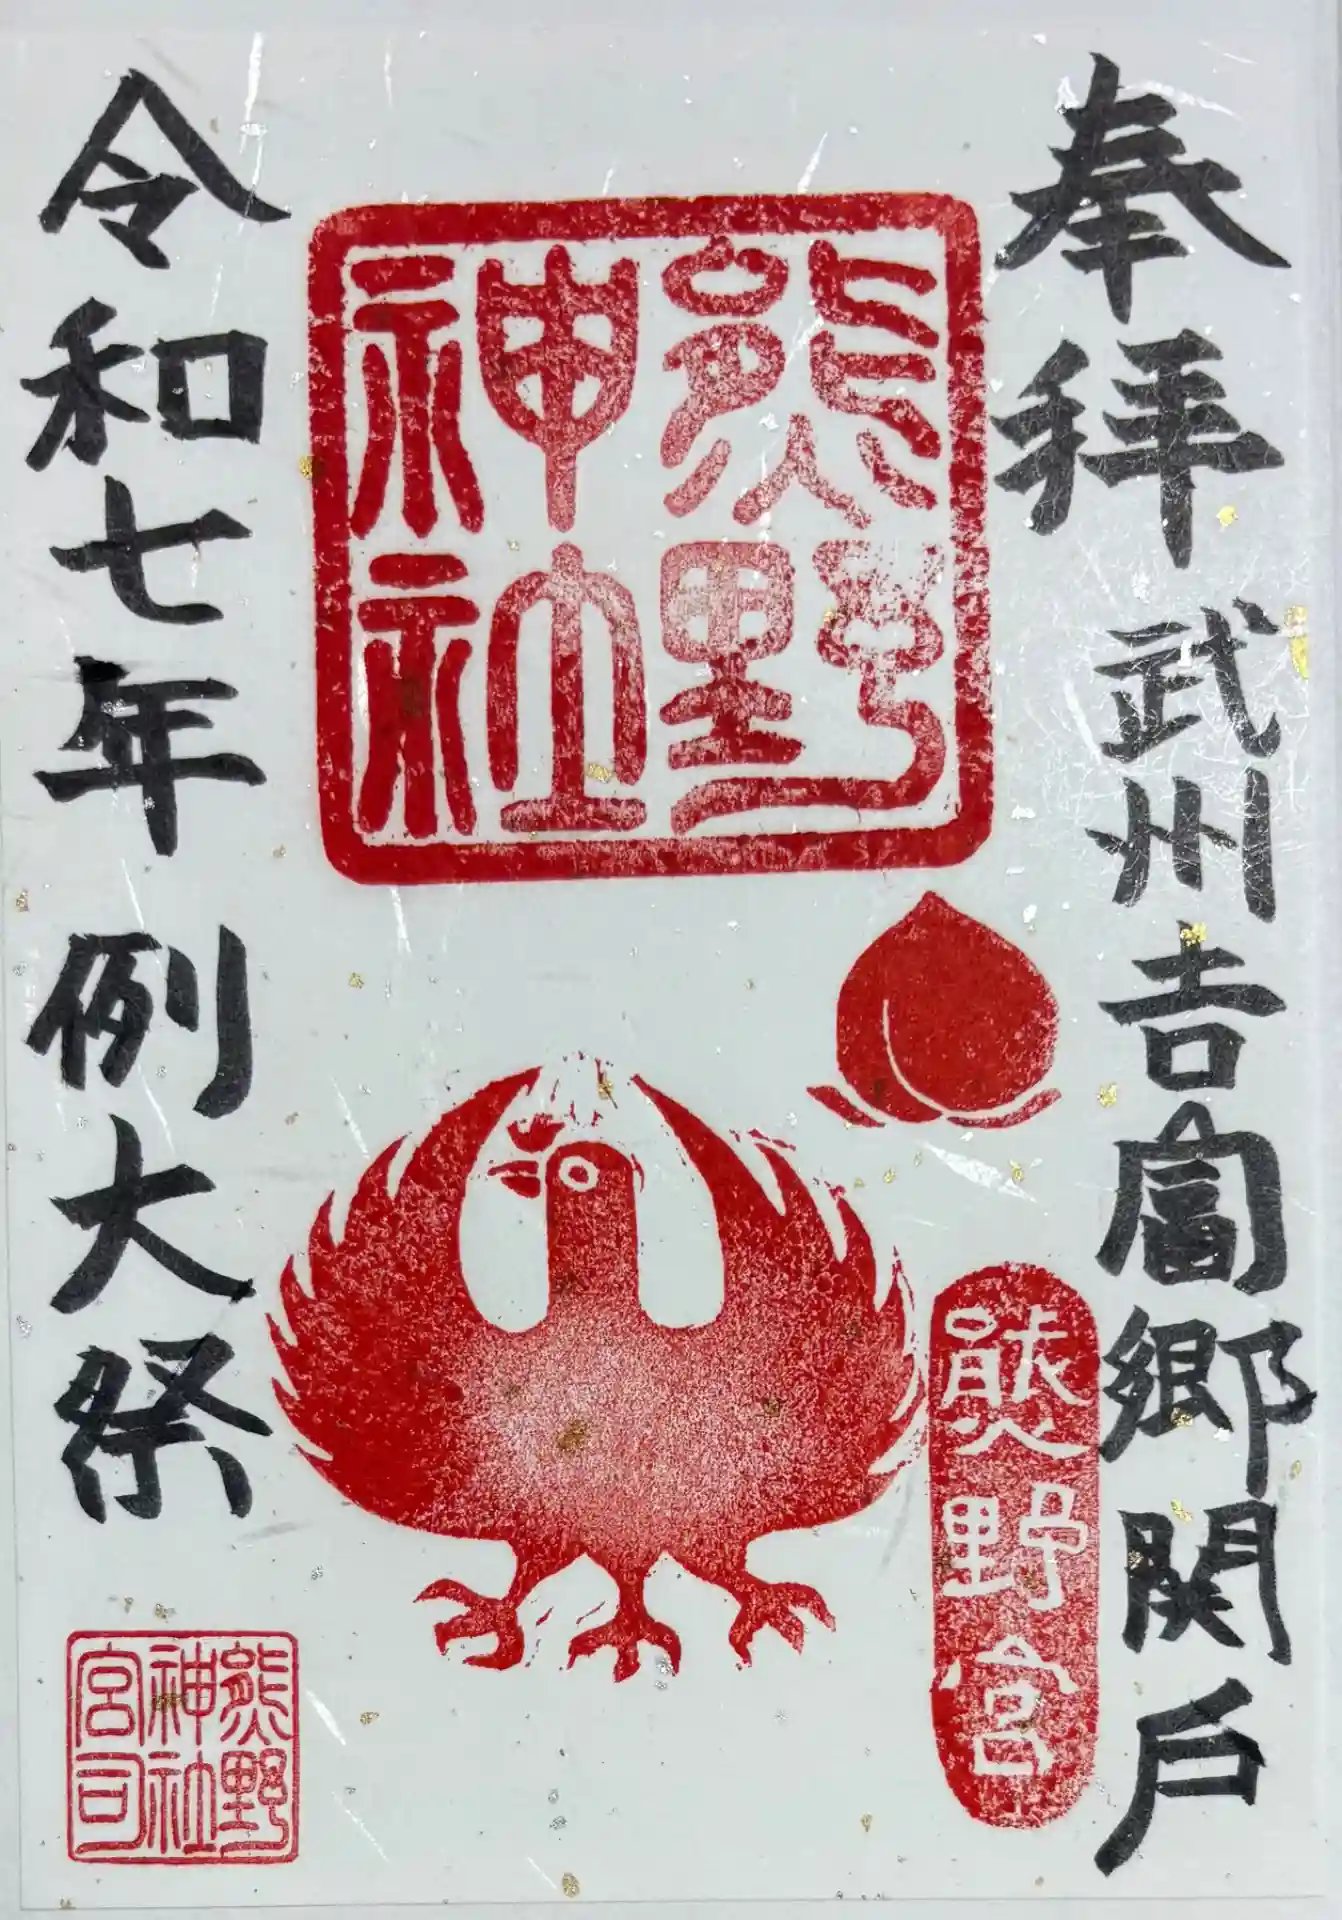 奉拝 武州吉富郷関戸
熊野
神社
熊野宮
令和七年 例大祭
熊野
神社
宮司